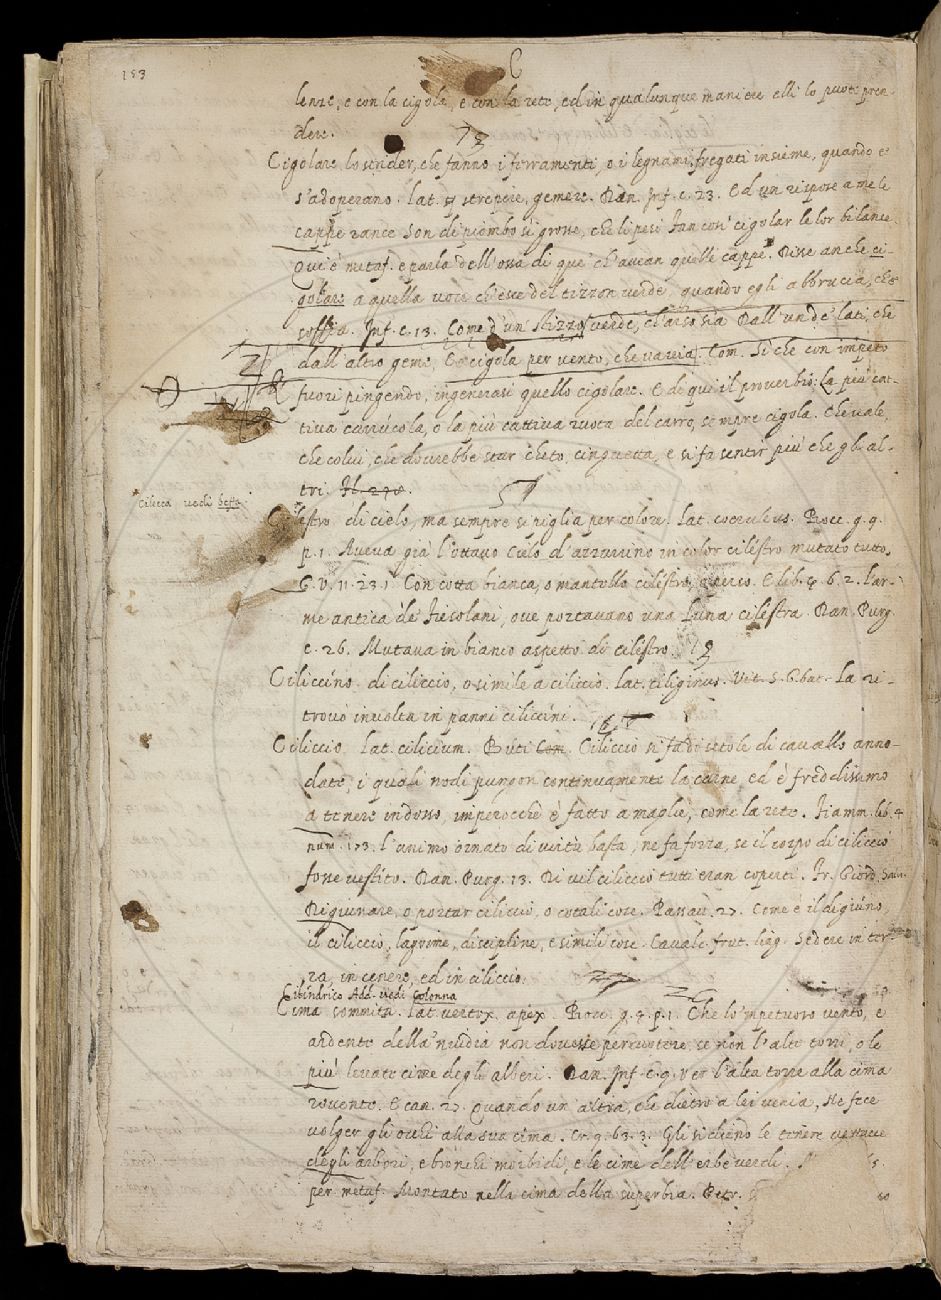 153
C
lenze, e con la cigola, e con la rete, ed in qualunque maniere elli lo puote pren-
dere.
Cigolare lo strider, che fanno i ferramenti, o i legnami, fregati insieme, quando e
s'adoperano. Lat. strepere, gemere. Dan. Inf. c. 23. Ed un rispose a me le
cappe rance Son di piombo si grosse, che li pesi Fan così cigolar le lor bilance.
Qui è metaf. e parla dell'ossa di que' ch'avean quelle cappe. Disse anche ci-
golare a quella voce ch'esce del tizzon verde, quando egli abbrucia, che
soffia. Inf. c. 13. Come d'un stizzo verde, ch'arso sia Dall'un de' lati, che
dall'altro geme, E cigola per vento, che va via. Com. Si che con impeto
fuori pingendo, ingenerasi quello cigolare. E di qui il proverbio: La più cat-
tiva carrucola, o la più cattiva ruota del carro, sempre cigola. Che vale,
che colui, che dovrebbe star cheto, cinguetta, e si fa sentir più che gli al-
tri.
Cilecca vedi beffa
Cilestro di cielo, ma sempre si piglia per colore. Lat. coeruleus. Bocc. g. 9.
p. 1. Aveva già l'ottavo cielo d'azzurrino in color cilestro mutato tutto.
G. V. 11. 23. 1 Con cotta bianca, o mantello cilestro, o perso. E lib. 4. 6. 2. L'ar-
me antica de' Fiesolani, ove portavano una Luna cilestra. Dan. Purg.
c. 26. Mutava in bianco aspetto di cilestro.
Ciliccino di ciliccio, o simile a ciliccio. Lat. ciliginus. Vit. S. Gbat. La ri-
trovò involta in panni ciliccini.
Ciliccio. Lat. cilicium. Buti Com. Ciliccio si fa di setole di cavallo anno-
date, i quali nodi pungon continuamente la carne, ed è freddissimo
a tenere indosso, imperocchè è fatto a maglie, come la rete. Fiamm. lib. 4
num. 173. L'animo ornato di virtù basta, ne fa forza, se il corpo di ciliccio
fosse vestito. Dan. Purg. 13. Di vil ciliccio tutti eran coperti. Fr. Giord. Salv.
Digiunare, o portar ciliccio, o cotali cose. Passav. 27. Come è il digiuno,
il ciliccio, lagrime, discipline, e simili cose. Cavalc. frut. ling. Sedere in ter-
ra, in cenere, ed in ciliccio.
Cilindrico Add. vedi Colonna
Cima sommità. Lat. vertex, apex. Bocc. g. 4. p. 1. Che lo'mpetuoso vento, e
ardente della 'nvidia non dovesse percuotere, se non l'alte torri, o le
più levate cime degli alberi. Dan. Inf. c. 9. Ver l'alta torre alla cima
rovente. E can. 27. Quando un'altra, che dietro a lei venia, Ne fece
volger gli occhi alla sua cima. Cr. 9. 63. 3. Gli si dieno le tenere vermene
degli arbori, e bronchi morbidi, e le cime dell'erbe verdi.
per metaf. Montato nella cima della superbia. Petr.